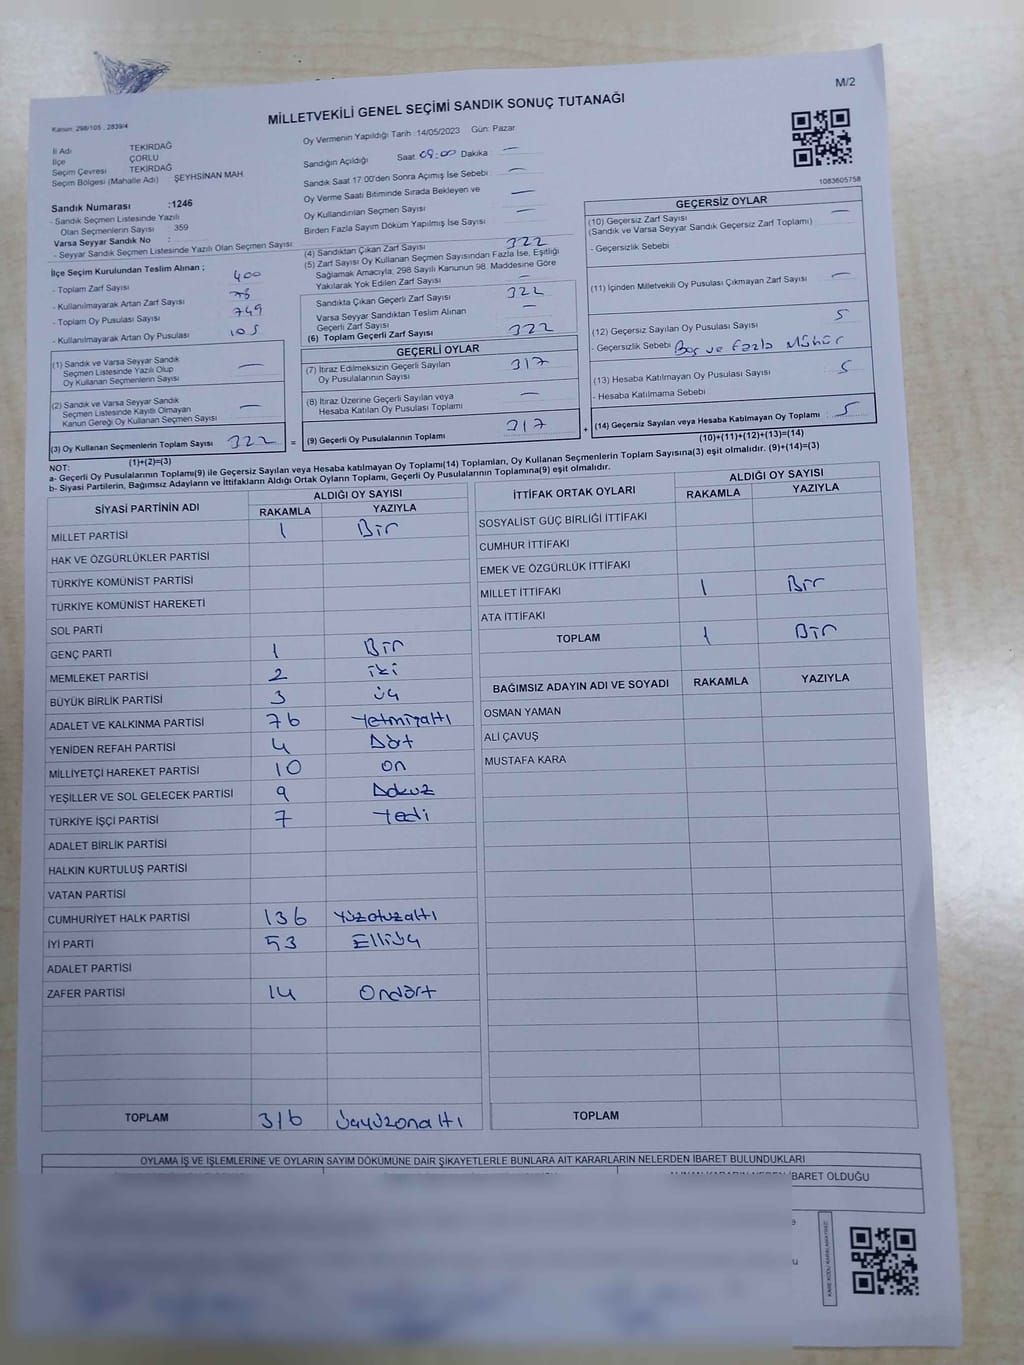 M/2
MİLLETVEKİLİ GENEL SEÇİMİ SANDIK SONUÇ TUTANAĞI
Kanun: 298/105 , 2839/4
İl Adı TEKİRDAĞ
İlçe ÇORLU
Seçim Çevresi TEKİRDAĞ
Seçim Bölgesi (Mahalle Adı) ŞEYHSİNAN MAH
Sandık Numarası :1246
- Sandık Seçmen Listesinde Yazılı
Olan Seçmenlerin Sayısı 359
Varsa Seyyar Sandık No :
- Seyyar Sandık Seçmen Listesinde Yazılı Olan Seçmen Sayısı
İlçe Seçim Kurulundan Teslim Alınan ;
- Toplam Zarf Sayısı 400
- Kullanılmayarak Artan Zarf Sayısı
- Toplam Oy Pusulası Sayısı 749
- Kullanılmayarak Artan Oy Pusulası
(1) Sandık ve Varsa Seyyar Sandık
Seçmen Listesinde Yazılı Olup
Oy Kullanan Seçmenlerin Sayısı —
(2) Sandık ve Varsa Seyyar Sandık
Seçmen Listesinde Kayıtlı Olmayan
Kanun Gereği Oy Kullanan Seçmen Sayısı —
(3) Oy Kullanan Seçmenlerin Toplam Sayısı 322 =
(1)+(2)=(3)
Oy Vermenin Yapıldığı Tarih :14/05/2023 Gün: Pazar
Sandığın Açıldığı Saat 08:00 Dakika : —
Sandık Saat 17:00'den Sonra Açımış İse Sebebi : —
Oy Verme Saati Bitiminde Sırada Bekleyen ve
Oy Kullandırılan Seçmen Sayısı —
Birden Fazla Sayım Döküm Yapılmış İse Sayısı —
(4) Sandıktan Çıkan Zarf Sayısı 322
(5) Zarf Sayısı Oy Kullanan Seçmen Sayısından Fazla İse, Eşitliği
Sağlamak Amacıyla, 298 Sayılı Kanunun 98. Maddesine Göre
Yakılarak Yok Edilen Zarf Sayısı —
Sandıkta Çıkan Geçerli Zarf Sayısı 322
Varsa Seyyar Sandıktan Teslim Alınan
Geçerli Zarf Sayısı —
(6) Toplam Geçerli Zarf Sayısı 322
GEÇERLİ OYLAR
(7) İtiraz Edilmeksizin Geçerli Sayılan
Oy Pusulalarının Sayısı 317
(8) İtiraz Üzerine Geçerli Sayılan veya
Hesaba Katılan Oy Pusulası Toplamı —
(9) Geçerli Oy Pusulalarının Toplamı 317 +
1083605758
GEÇERSİZ OYLAR
(10) Geçersiz Zarf Sayısı
(Sandık ve Varsa Seyyar Sandık Geçersiz Zarf Toplamı) —
- Geçersizlik Sebebi
(11) İçinden Milletvekili Oy Pusulası Çıkmayan Zarf Sayısı —
(12) Geçersiz Sayılan Oy Pusulası Sayısı 5
- Geçersizlik Sebebi Boş ve Fazla Mühür
(13) Hesaba Katılmayan Oy Pusulası Sayısı 5
- Hesaba Katılmama Sebebi
(14) Geçersiz Sayılan veya Hesaba Katılmayan Oy Toplamı : 5
(10)+(11)+(12)+(13)=(14)
NOT:
a- Geçerli Oy Pusulalarının Toplamı(9) ile Geçersiz Sayılan veya Hesaba katılmayan Oy Toplamı(14) Toplamları, Oy Kullanan Seçmenlerin Toplam Sayısına(3) eşit olmalıdır. (9)+(14)=(3)
b- Siyasi Partilerin, Bağımsız Adayların ve İttifakların Aldığı Ortak Oyların Toplamı, Geçerli Oy Pusulalarının Toplamına(9) eşit olmalıdır.
SİYASİ PARTİNİN ADI ALDIĞI OY SAYISI
RAKAMLA YAZIYLA
MİLLET PARTİSİ 1 Bir
HAK VE ÖZGÜRLÜKLER PARTİSİ
TÜRKİYE KOMÜNİST PARTİSİ
TÜRKİYE KOMÜNİST HAREKETİ
SOL PARTİ
GENÇ PARTİ 1 Bir
MEMLEKET PARTİSİ 2 iki
BÜYÜK BİRLİK PARTİSİ 3 üç
ADALET VE KALKINMA PARTİSİ 76 Yetmişaltı
YENİDEN REFAH PARTİSİ 4 Dört
MİLLİYETÇİ HAREKET PARTİSİ 10 on
YEŞİLLER VE SOL GELECEK PARTİSİ 9 Dokuz
TÜRKİYE İŞÇİ PARTİSİ 7 Yedi
ADALET BİRLİK PARTİSİ
HALKIN KURTULUŞ PARTİSİ
VATAN PARTİSİ
CUMHURİYET HALK PARTİSİ 136 Yüzotuzaltı
İYİ PARTİ 53 Elliüç
ADALET PARTİSİ
ZAFER PARTİSİ 14 Ondört
TOPLAM 316 üçyüzonaltı
İTTİFAK ORTAK OYLARI ALDIĞI OY SAYISI
RAKAMLA YAZIYLA
SOSYALİST GÜÇ BİRLİĞİ İTTİFAKI
CUMHUR İTTİFAKI
EMEK VE ÖZGÜRLÜK İTTİFAKI
MİLLET İTTİFAKI 1 Bir
ATA İTTİFAKI
TOPLAM 1 Bir
BAĞIMSIZ ADAYIN ADI VE SOYADI RAKAMLA YAZIYLA
OSMAN YAMAN
ALİ ÇAVUŞ
MUSTAFA KARA
TOPLAM
OYLAMA İŞ VE İŞLEMLERİNE VE OYLARIN SAYIM DÖKÜMÜNE DAİR ŞİKAYETLERLE BUNLARA AİT KARARLARIN NELERDEN İBARET BULUNDUKLARI
İBARET OLDUĞU